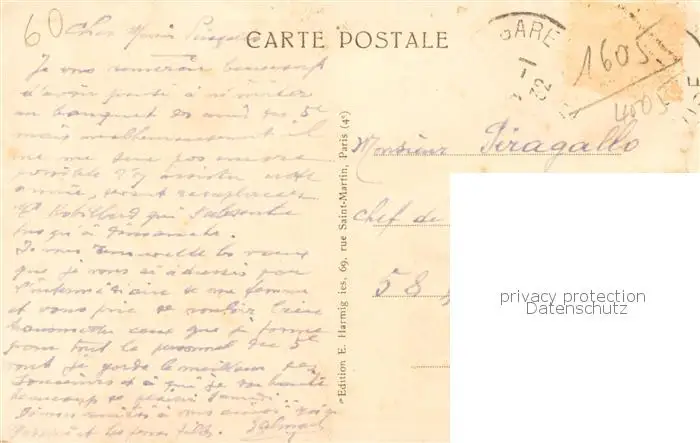 60
Cher Monsieur Piragallo
CARTE POSTALE
GARE
1605
4005
Je vous remercie beaucoup
d'avoir pensé à m'inviter
au banquet des amis du 5e
mais malheureusement il
ne me sera pas encore
possible d'y assister cette
année, devant remplacer
Mr Robillard qui s'absente
jusqu'à Dimanche.
Je vous renouvelle les voeux
que je vous ai adressés par
l'intermédiaire de ma femme
et vous prie de vouloir bien
transmettre ceux que je forme
pour tout le personnel du 5e
dont je garde le meilleur
souvenir et à qui je souhaite
beaucoup de
Monsieur Piragallo
Chef de
58
Edition E. Harmignies, 69, rue Saint-Martin, Paris (4e)
privacy protection
Datenschutz